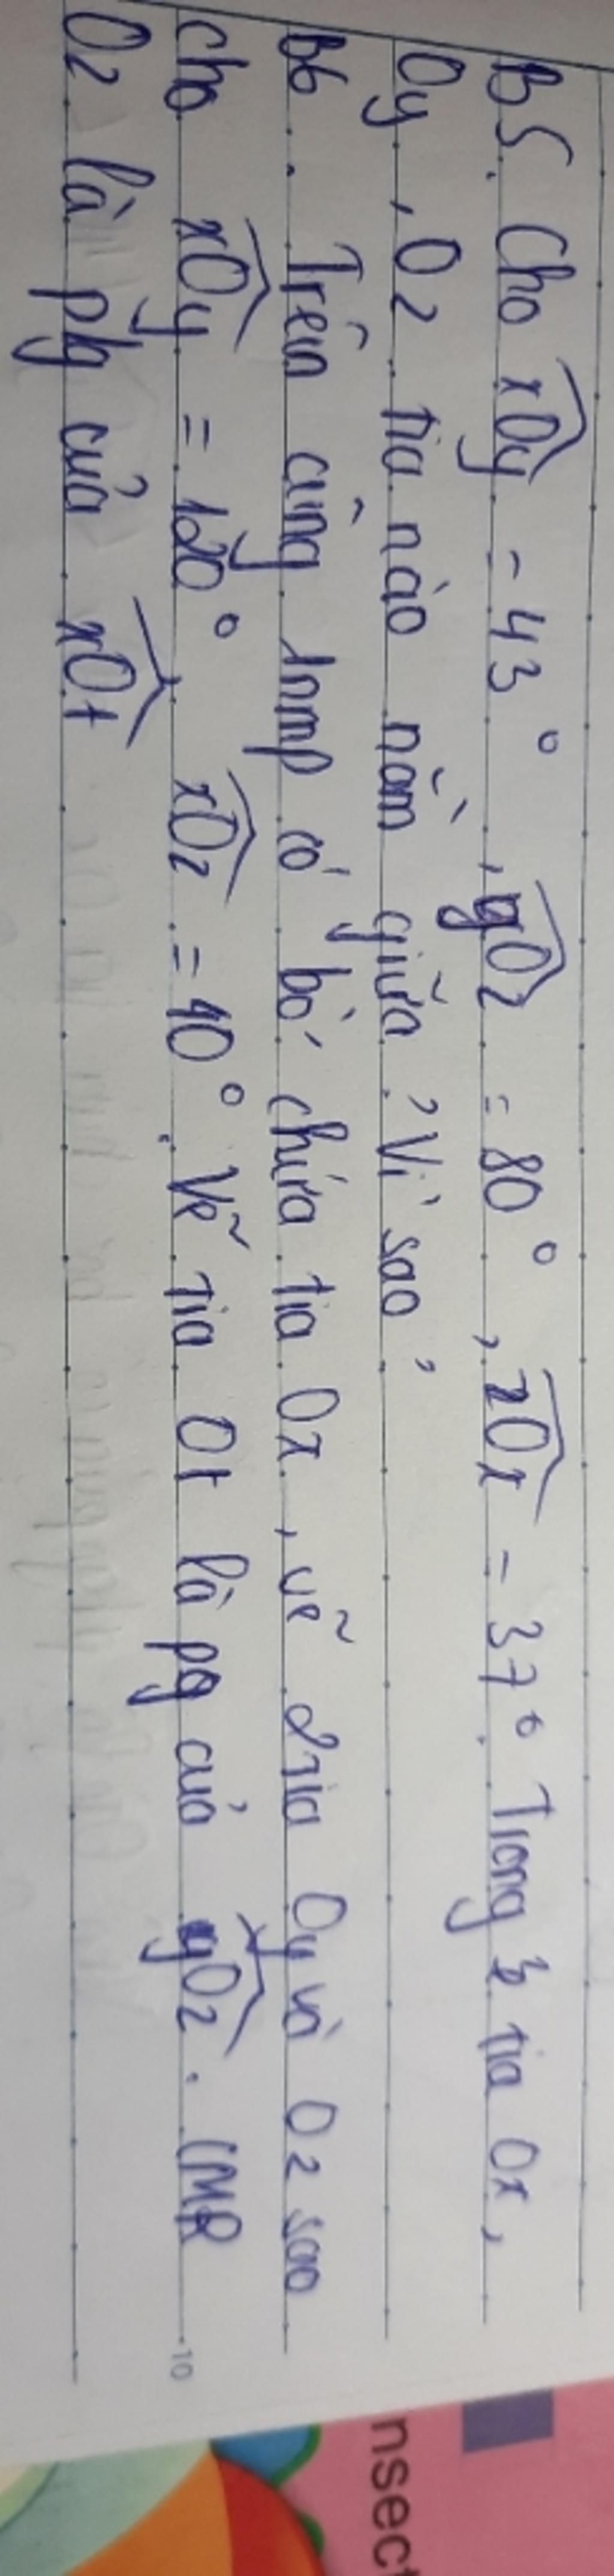 B5. Cho xOy = 43°, yOz = 80°, zOx = 37°. Trong 3 tia Ox,
Oy, Oz tia nào nằm giữa? Vì sao?
B6. Trên cùng 1nmp có bờ chứa tia Ox, vẽ 2 tia Oy và Oz sao
cho xOy = 120°, xOz = 40°. Vẽ tia Ot là pg của yOz. CMR
Oz là pg của xOt
10
nsect